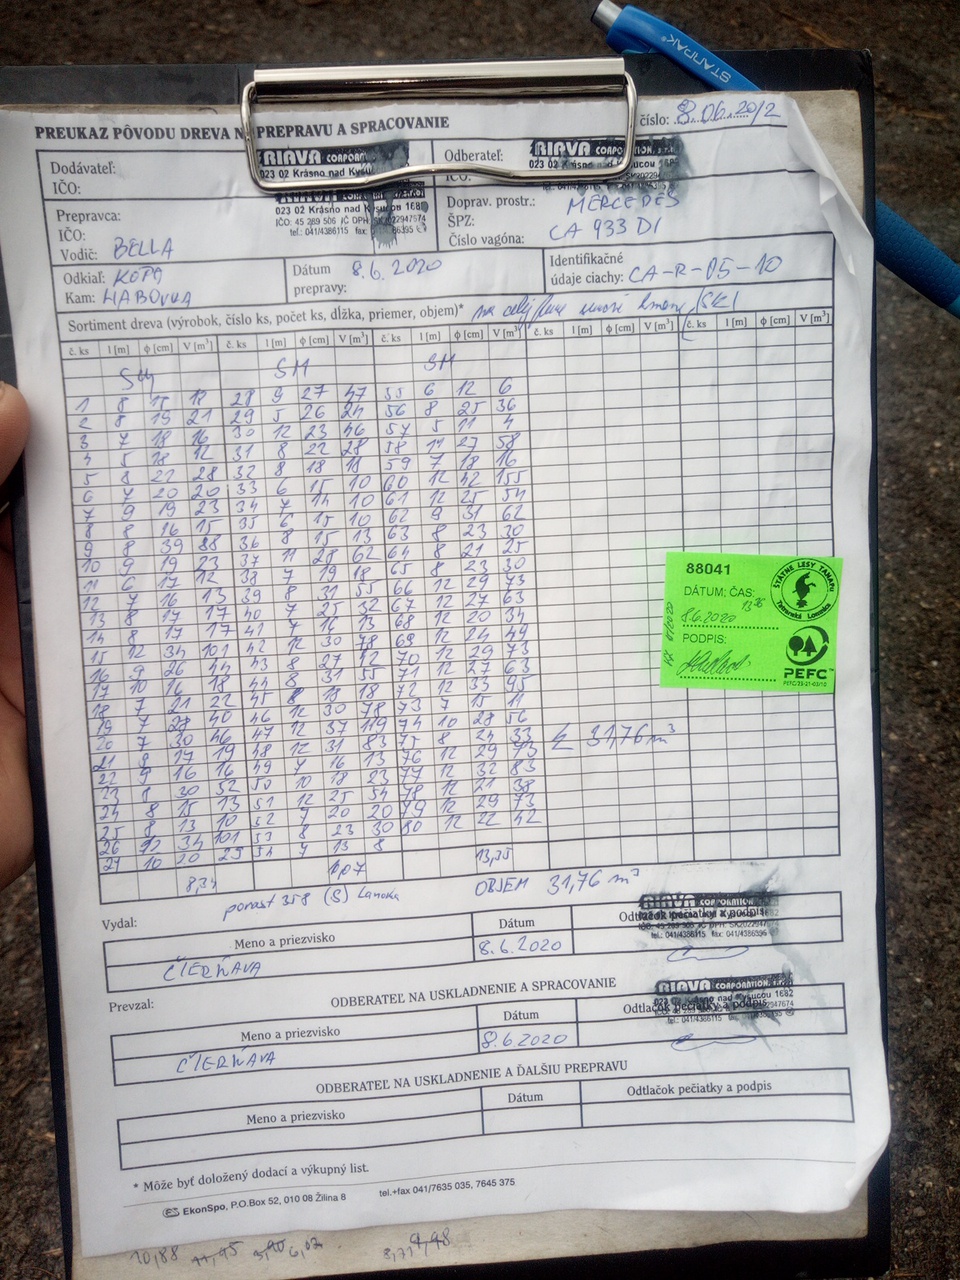 STANPAK
PREUKAZ PÔVODU DREVA NA PREPRAVU A SPRACOVANIE
číslo: 8.06.20/2
Dodávateľ:
IČO:
RIAVA CORPORATION
023 02 Krásno nad Kysucou
Odberateľ:
RIAVA CORPORATION, s.r.o.
023 02 Krásno nad Kysucou 1682
Prepravca:
IČO:
Vodič: BELLA
023 02 Krásno nad Kysucou 1682
IČO: 45 289 506 IČ DPH: SK2022947674
tel.: 041/4386115 fax:
Doprav. prostr.: MERCEDES
ŠPZ: CA 933 DI
Číslo vagóna:
Odkiaľ: KOPA
Kam: HABOVKA
Dátum prepravy: 8.6.2020
Identifikačné
údaje ciachy: CA-R-05-10
Sortiment dreva (výrobok, číslo ks, počet ks, dĺžka, priemer, objem)*
č. ks l [m] ϕ [cm] V [m³] č. ks l [m] ϕ [cm] V [m³] č. ks l [m] ϕ [cm] V [m³] č. ks l [m] ϕ [cm] V [m³] č. ks l [m] ϕ [cm] V [m³]
SM SM SM
1 8 28 9 27 47 55 6 12 6
2 8 19 21 29 5 26 24 56 8 25 36
3 7 18 16 30 12 23 46 57 5 11 4
4 5 18 12 31 8 22 28 58 27 58
5 8 22 28 32 8 18 18 59 7 18 16
6 7 20 20 33 6 15 10 60 12 42 155
7 9 19 23 34 7 14 10 61 12 25 54
8 8 16 15 35 6 15 10 62 9 31 62
9 8 39 88 36 8 15 13 63 8 23 30
10 9 19 23 37 11 28 62 64 8 21 25
11 6 17 12 38 7 19 18 65 8 23 30
12 7 16 13 39 8 31 55 66 12 29 73
13 8 17 17 40 7 25 32 67 12 27 63
14 8 17 17 41 7 16 13 68 12 20 34
15 12 34 101 42 12 30 78 69 12 24 49
16 9 26 44 43 8 27 42 70 12 29 73
17 10 16 18 44 8 31 55 71 12 27 63
18 7 21 22 45 8 18 18 72 12 33 95
19 7 28 40 46 12 30 78 73 7 15 11
20 7 30 46 47 12 37 119 74 10 28 56
21 8 17 19 48 12 31 83 75 8 24 33
22 9 16 16 49 7 16 13 76 12 29 73
23 8 30 52 50 10 18 23 77 12 32 83
24 8 15 13 51 12 25 54 78 12 21 38
25 8 13 10 52 7 20 20 79 12 29 73
26 12 34 101 53 8 23 30 80 12 22 42
27 10 20 25 54 7 13 8
8,34 13,35
Σ 31,76 m³
88041
DÁTUM; ČAS:
8.6.2020
PODPIS:
ŠTÁTNE LESY TANAPU
Tatranská Lomnica
PEFC
porast 358 (S)
OBJEM 31,76 m³
Vydal:
Meno a priezvisko
Dátum
Odtlačok pečiatky a podpis
RIAVA CORPORATION
tel.: 041/4386115 fax: 041/4386396
ČIERŇAVA
8.6.2020
Prevzal:
ODBERATEĽ NA USKLADNENIE A SPRACOVANIE
Meno a priezvisko
Dátum
Odtlačok pečiatky a podpis
RIAVA CORPORATION, s.r.o.
023 02 Krásno nad Kysucou 1682
ČIERŇAVA
8.6.2020
ODBERATEĽ NA USKLADNENIE A ĎALŠIU PREPRAVU
Meno a priezvisko
Dátum
Odtlačok pečiatky a podpis
* Môže byť doložený dodací a výkupný list.
EkonSpo, P.O.Box 52, 010 08 Žilina 8 tel.+fax 041/7635 035, 7645 375
10,88